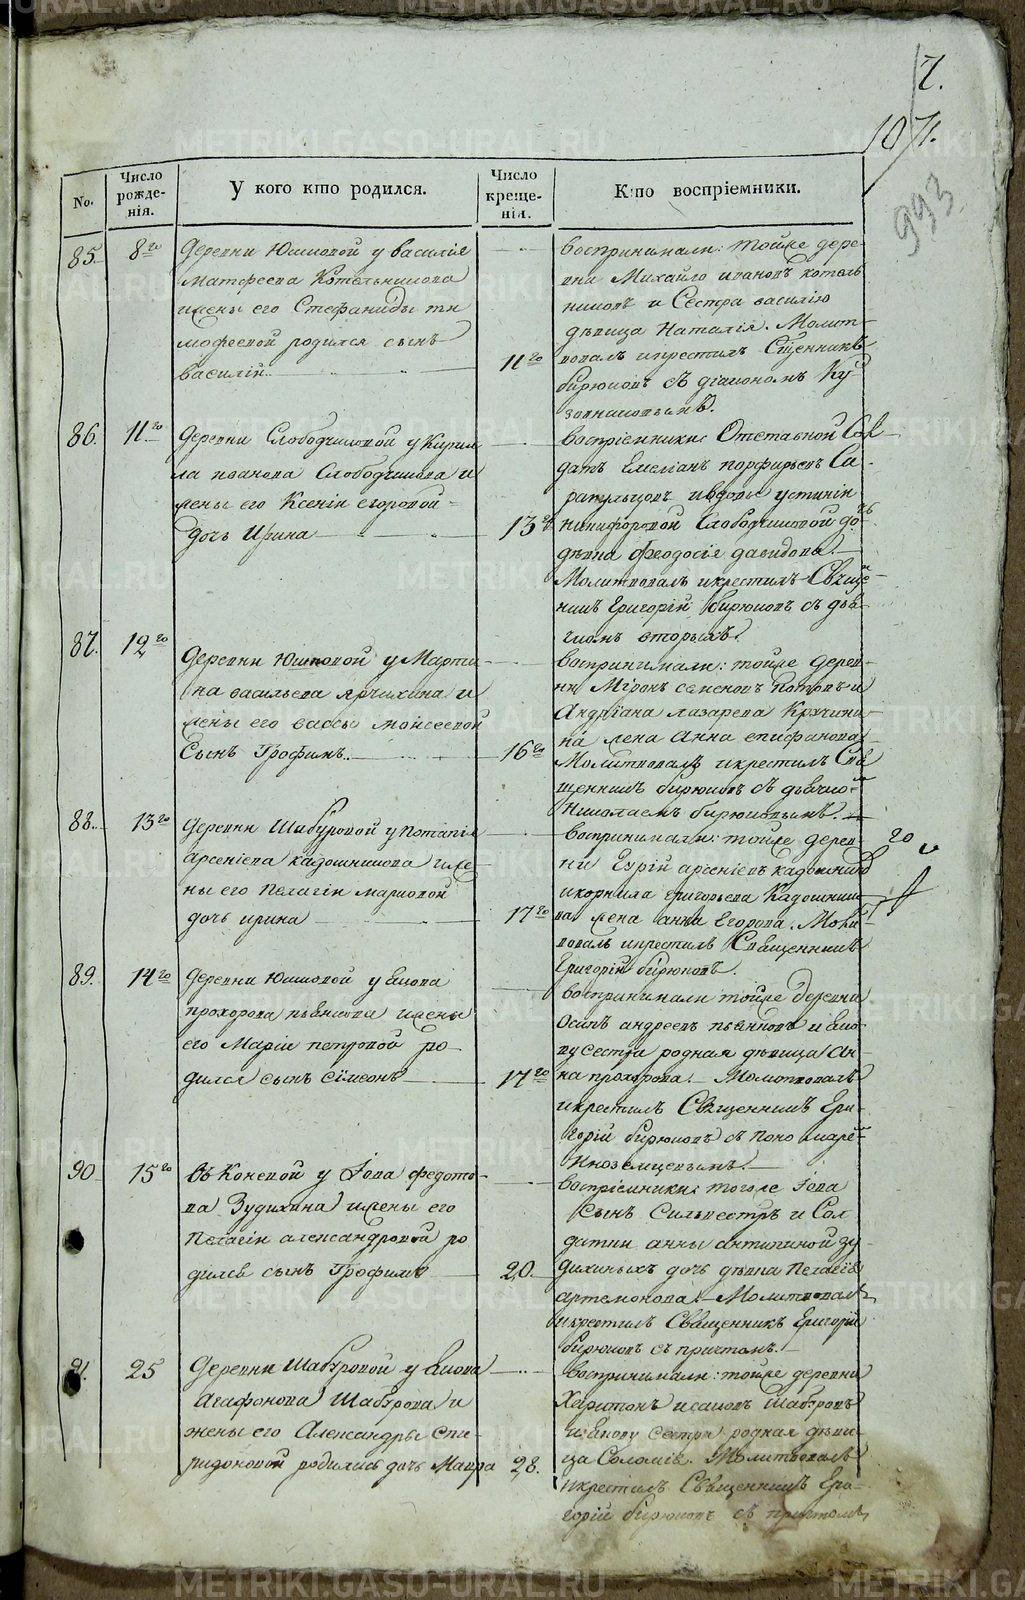 7.
1071.
993
No.
Число рожде-нія.
У кого кто родился.
Число креще-нія.
Кто воспріемники.
85.
8го
деревни Юшковой у василія
матфеева Котельникова
и жены его Стефаниды ти
мофеевой родился сынъ
василій.
11го
воспринимали: тойже дере
вни Михайло ивановъ котель
никовъ и Сестра василію
дѣвица Наталія. Молит
вовалъ и крестилъ Сщенникъ
бирюковъ съ діакономъ Ку
86.
11го
деревни Слободчиковой у Кирил
ла иванова Слободчикова и
жены его Ксеніи егоровой
дочь Ирина
13го
воспріемники: Отставной Сол
датъ Емеліанъ порфирьевъ Са
рапульцовъ и вдовы устиніи
никифоровой Слободчиковой до
дѣвка феодосія давидова.
Молитвовалъ и крестилъ Свяще
никъ Григорій бирюковъ съ дья
87.
12го
деревни Юшковой у Марти
на васильева и
жены его вассы моисеевой
Сынъ Трофимъ.
16го
воспринимали: тойже дерев
ни Міронъ семеновъ и
Андріана лазарева
на жена Анна епифанова
Молитвовалъ и крестилъ Свя
щенникъ бирюковъ съ дьячко
Николаемъ бирюковымъ.
88.
13го
деревни Шабуровой у потапія
арсеніева кадошникова и же
ны его Пелагіи марковой
дочь ирина
17го
воспринимали: тойже дерев
ни Гурій арсеніевъ кадошник
и корнила григорьева Кадошник
ва жена анна Егорова. Моли
вовалъ и крестилъ Священникъ
Григорій бирюковъ.
89.
14го
деревни Юшковой у якова
прохорова пьянкова и жены
его Маріи петровой ро
дился сынъ сімеонъ
17го
воспринимали тойже деревни
Осипъ андреевъ пьянковъ и яко
ву сестра родная дѣвица Ан
на прохорова. Молитвовалъ
и крестилъ Священникъ Гри
горій бирюковъ съ поно маре
Иноземцевымъ.
90
15го
въ Коневой у Іова федото
ва Зудихина и жены его
Пелагіи александровой ро
дился сынъ Трофимъ
20.
воспріемники: тогоже Іова
Сынъ Сильвестръ и Сол
датки анны антипиной зу
дихиныхъ дочь дѣвка Пелагія
артемонова. Молитвовалъ
и крестилъ Священникъ Григорій
бирюковъ съ причтомъ.
91.
25
деревни Шабуровой у якова
Агафонова Шабурова и
жены его Александры спи
ридоновой родилась дочь Мавра
28.
воспринимали: тойже деревни
Харитонъ исаковъ Шабуровъ
и якову сестра родная дѣви
ца Соломія. Молитвовалъ
и крестилъ Священникъ Гри
горій бирюковъ съ причтомъ